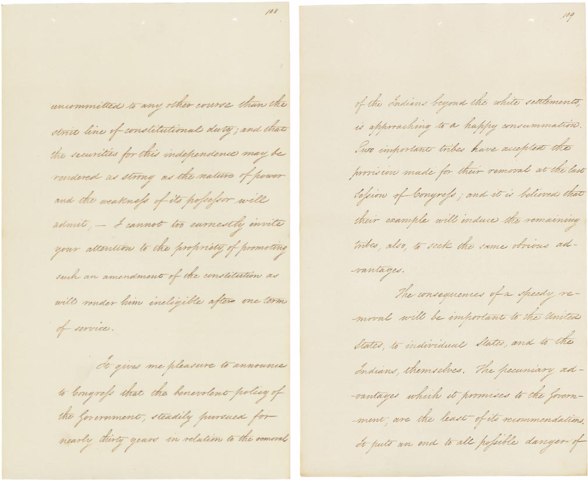 108
uncommitted to any other course than the
strict line of constitutional duty; and that
the securities for this independence may be
rendered as strong as the nature of power
and the weakness of its possessor will
admit, — I cannot too earnestly invite
your attention to the propriety of promoting
such an amendment of the constitution as
will render him ineligible after one term
of service.
It gives me pleasure to announce
to Congress that the benevolent policy of
the Government, steadily pursued for
nearly thirty years in relation to the removal
109
of the Indians beyond the white settlements,
is approaching to a happy consummation.
Two important tribes have accepted the
provision made for their removal at the last
Session of Congress; and it is believed that
their example will induce the remaining
tribes, also, to seek the same obvious ad-
-vantages.
The consequences of a speedy re-
-moval will be important to the United
States, to individual States, and to the
Indians, themselves. The pecuniary ad-
-vantages which it promises to the Govern-
-ment, are the least of its recommendations.
It puts an end to all possible danger of